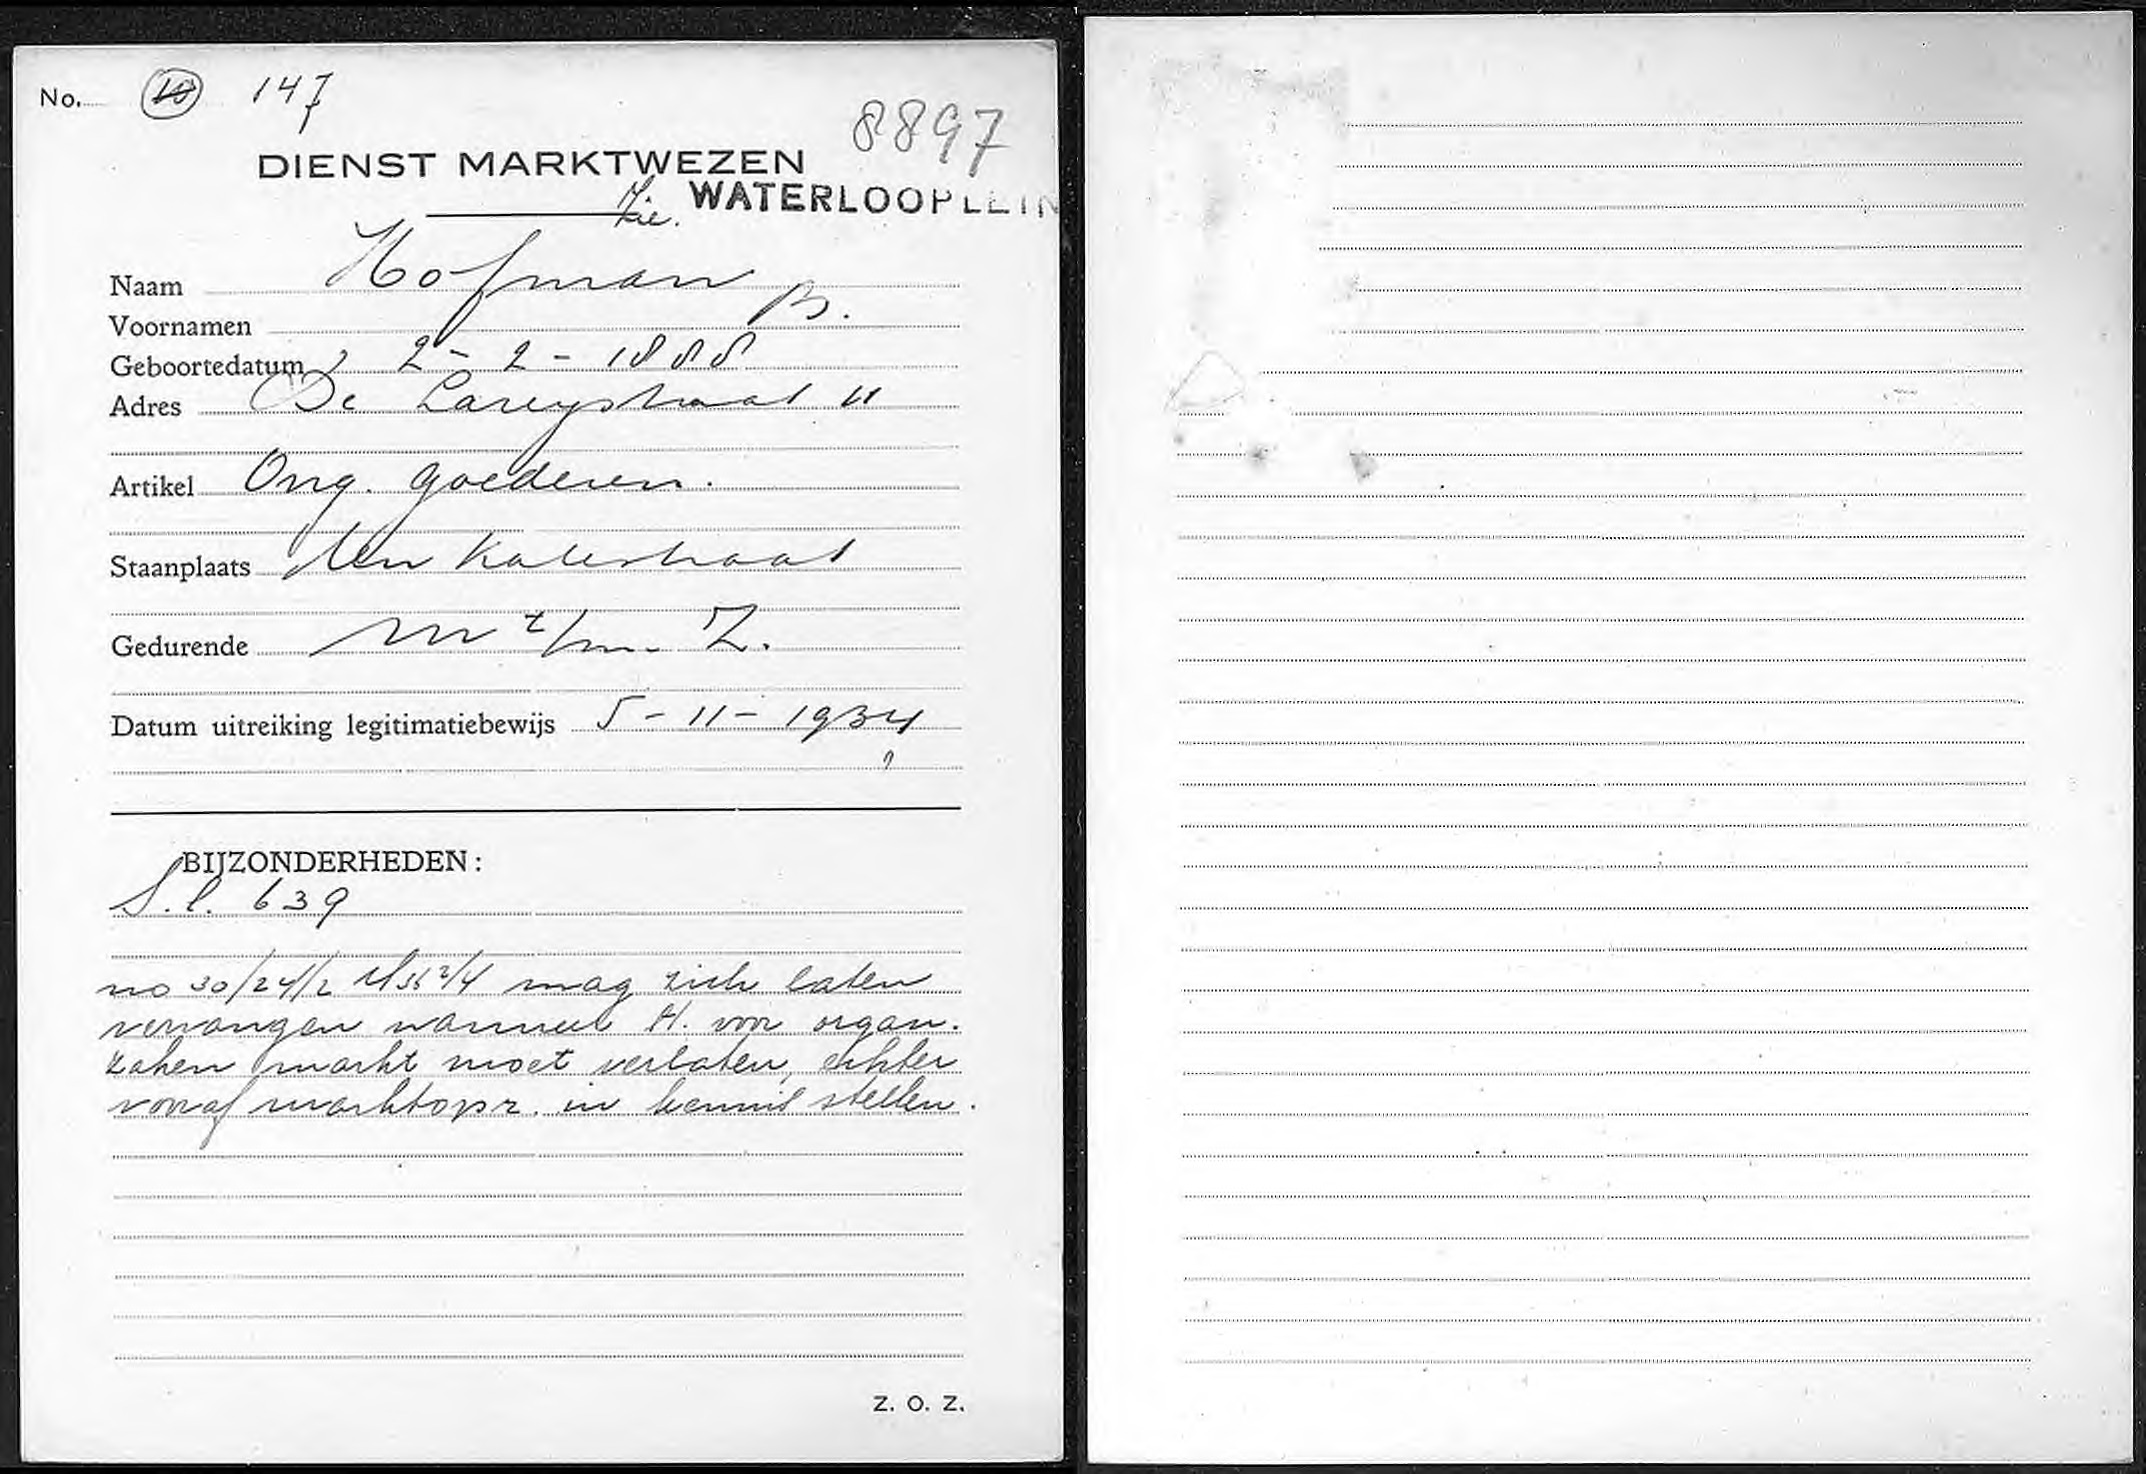 No. 10 147
8897
DIENST MARKTWEZEN
Zie. WATERLOOPLEIN
Naam Hofman
Voornamen B.
Geboortedatum 2-2-1888
Adres De Lareystraat 11
Artikel Ong. goederen.
Staanplaats Ten Katestraat
Gedurende M t/m. Z.
Datum uitreiking legitimatiebewijs 5-11-1934
BIJZONDERHEDEN:
S.l. 639
no 30/24/2 M 36 2/4 mag zich laten
vervangen wanneer H. voor organ.
zaken markt moet verlaten, echter
vooraf marktopz. in kennis stellen.
Z. O. Z.